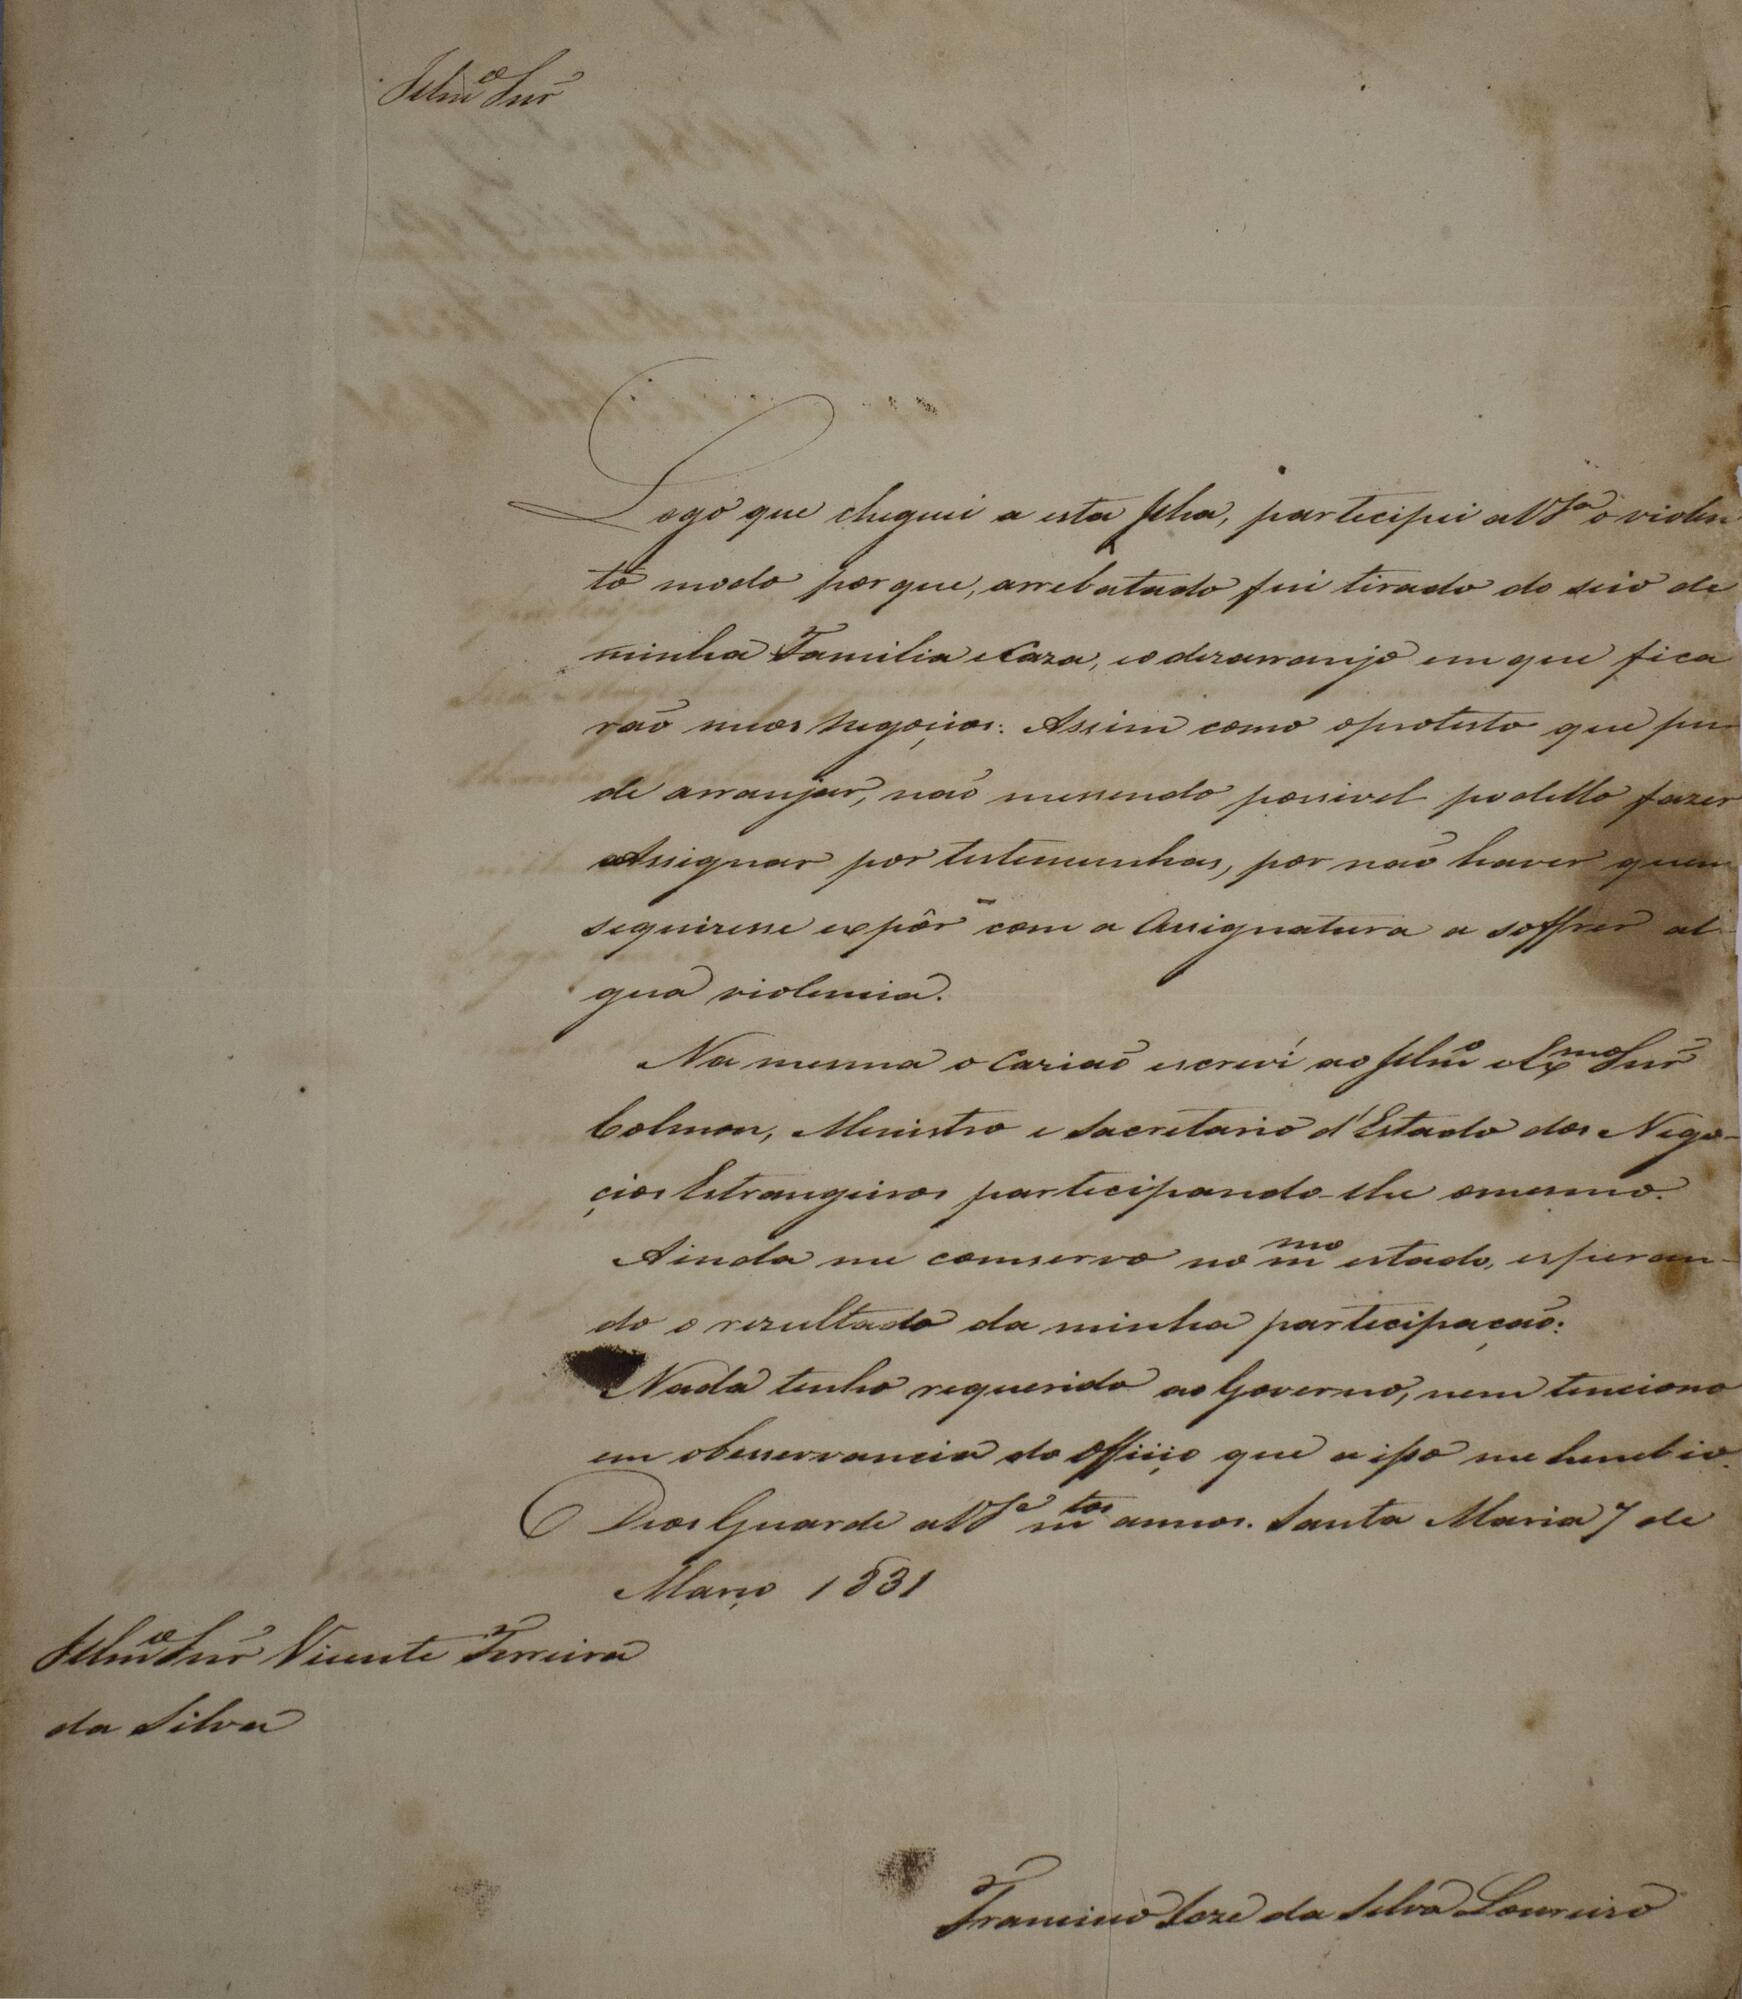 Illmº Snr̃
Logo que cheguei a esta Ilha, participei a VSª o violen
to modo porque, arrebatado fui tirado do seio de
minha Familia e Caza, e o dezarranjo em que fica
raõ meos Negoçios: Assim como o protesto que pu
de arranjar, naõ messendo possivel podello fazer
Assignar por testemunhas, por naõ haver quem
sequizesse expôr com a Assignatura a soffrer al
gua violencia.
Na mesma ocaziaõ escreví ao Illmº e Exmo Snr̃
Colmon, Ministro e Sacretario d'Estado dos Nego-
çios Estrangeiros participando-lhe omesmo.
Ainda me comservo no mmo estado, esperan-
do o rezultado da minha participaçaõ:
Nada tenho requerido ao Governo, nem tenciono
em obesservancia do Offiçio que a isso me
Deos Guarde a VSª mtos annos. Santa Maria 7 de
Março 1831
Illmº Snr̃ Vicente Ferreira
da Silva
Francisco Joze da Silva Loureiro